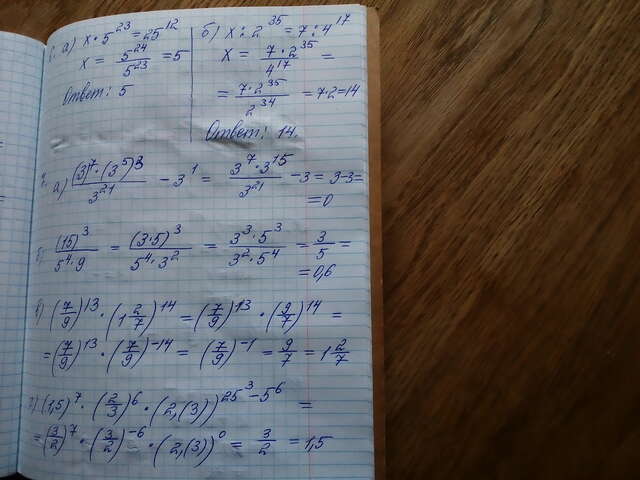 6. а) x · 5^23 = 25^12
x = 5^24/5^23 = 5
Ответ: 5
б) x : 2^35 = 7 : 4^17
x = 7·2^35/4^17 =
= 7·2^35/2^34 = 7·2=14
Ответ: 14.
7. а) (3)^7·(3^5)^3/3^21 − 3^1 = 3^7·3^15/3^21 − 3 = 3−3=
=0
б) (15)^3/5^4·9 = (3·5)^3/5^4·3^2 = 3^3·5^3/3^2·5^4 = 3/5 =
= 0,6
в) (7/9)^13 · (1 2/7)^14 = (7/9)^13 · (9/7)^14 =
= (7/9)^13 · (7/9)^−14 = (7/9)^−1 = 9/7 = 1 2/7
г) (1,5)^7 · (2/3)^6 · (2,(3))^25^3−5^6 =
= (3/2)^7 · (3/2)^−6 · (2,(3))^0 = 3/2 = 1,5